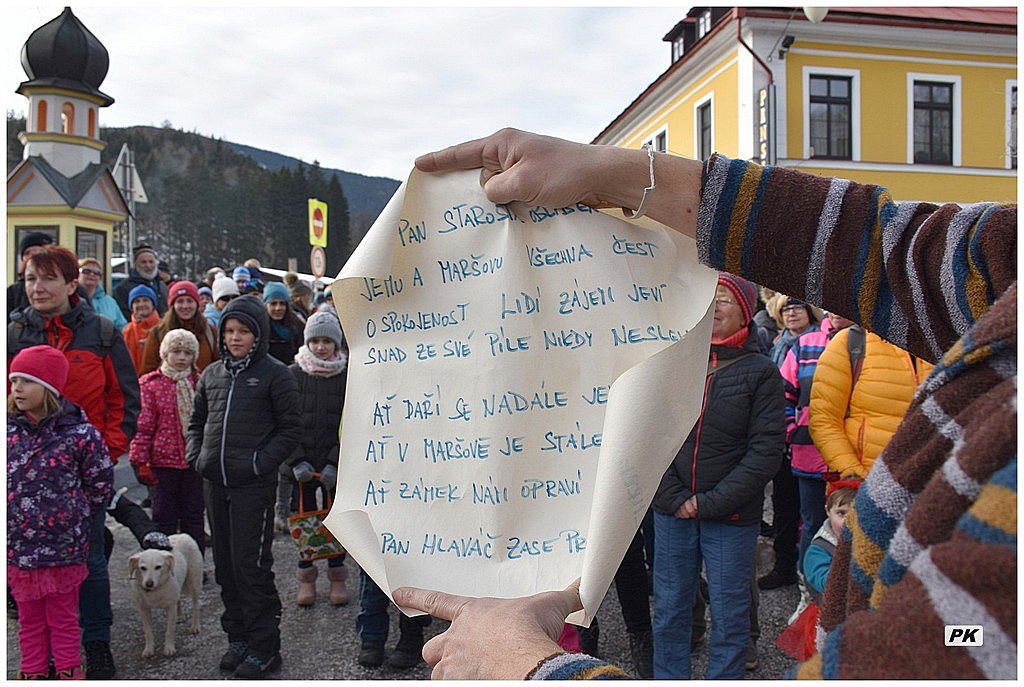 PAN STAROSTA
JEMU A MARŠOVU VŠECHNA ČEST
O SPOKOJENOST LIDÍ ZÁJEM JEVÍ
SNAD ZE SVÉ PÍLE NIKDY
AŤ DAŘÍ SE NADÁLE
AŤ V MARŠOVĚ JE STÁLE
AŤ ZÁMEK NÁM OPRAVÍ
PAN HLAVÁČ ZASE
PK